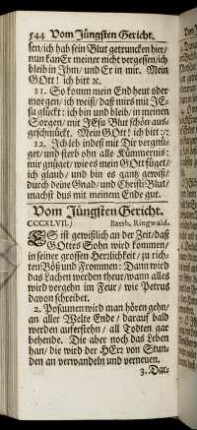 544 Vom Jüngsten Gericht.
sen/ich hab sein Blut getruncken hier/
nun kan Er meiner nicht vergessen/ich
bleib in Ihm/ und Er in mir. Mein
GOtt! ich bitt ꝛc.
11. So komm mein End heut oder
morgen/ ich weiß/ daß mirs mit JE-
su glückt: ich bin und bleib/ in meinen
Sorgen/ mit JEsu Blut schön aus-
geschmückt. Mein GOtt! ich bitt :/:
12. Ich leb indeß mit Dir vergnü-
get/ und sterb ohn alle Kümmernis:
mir gnüget/ wie es mein GOtt füget/
ich glaub/ und bin es gantz gewiß/
durch deine Gnad/ und Christi Blut/
machst dus mit meinem Ende gut.
Vom Jüngsten Gericht.
CCCXLVII.) Barth. Ringwald.
ES ist gewißlich an der Zeit/daß
GOttes Sohn wird kommen/
in seiner grossen Herrlichkeit/ zu rich-
ten Böß und Frommen: Dann wird
das Lachen werden theur/wann alles
wird vergehn im Feur/ wie Petrus
davon schreibet.
2. Posaunen wird man hören gehn/
an aller Welte Ende/ darauf bald
werden auferstehn/ all Todten gar
behende. Die aber noch das Leben
han/ die wird der HErr von Stun-
den an verwandeln und verneuen.
3. Dar-